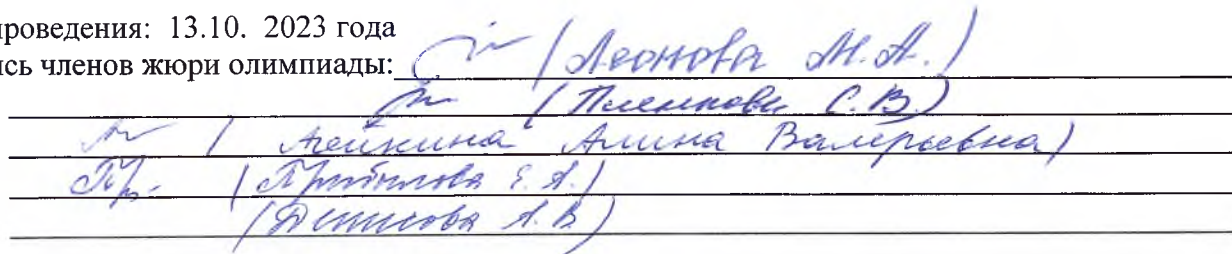 проведения: 13.10. 2023 года
ись членов жюри олимпиады: (Леонова М.А.)
(Пленкова С.В.)
Алина Валерьевна)
(Прибылова Е.А.)
(Денисова А.В.)